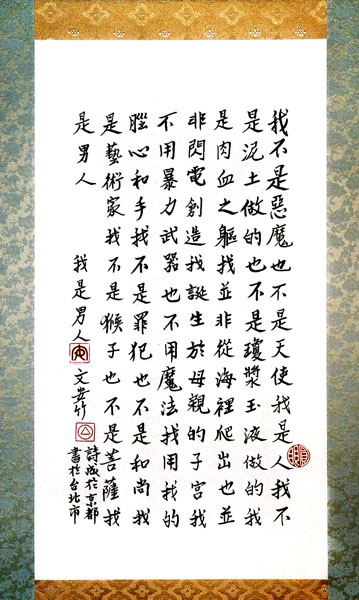 我不是惡魔也不是天使我是人我不
是泥土做的也不是瓊漿玉液做的我
是肉血之軀我並非從海裡爬出也並
非閃電創造我誕生於母親的子宮我
不用暴力武器也不用魔法我用我的
腦心和手我不是罪犯也不是和尚我
是藝術家我不是猴子也不是菩薩我
是男人 我是男人 文 竹
詩成於京都
書於台北市